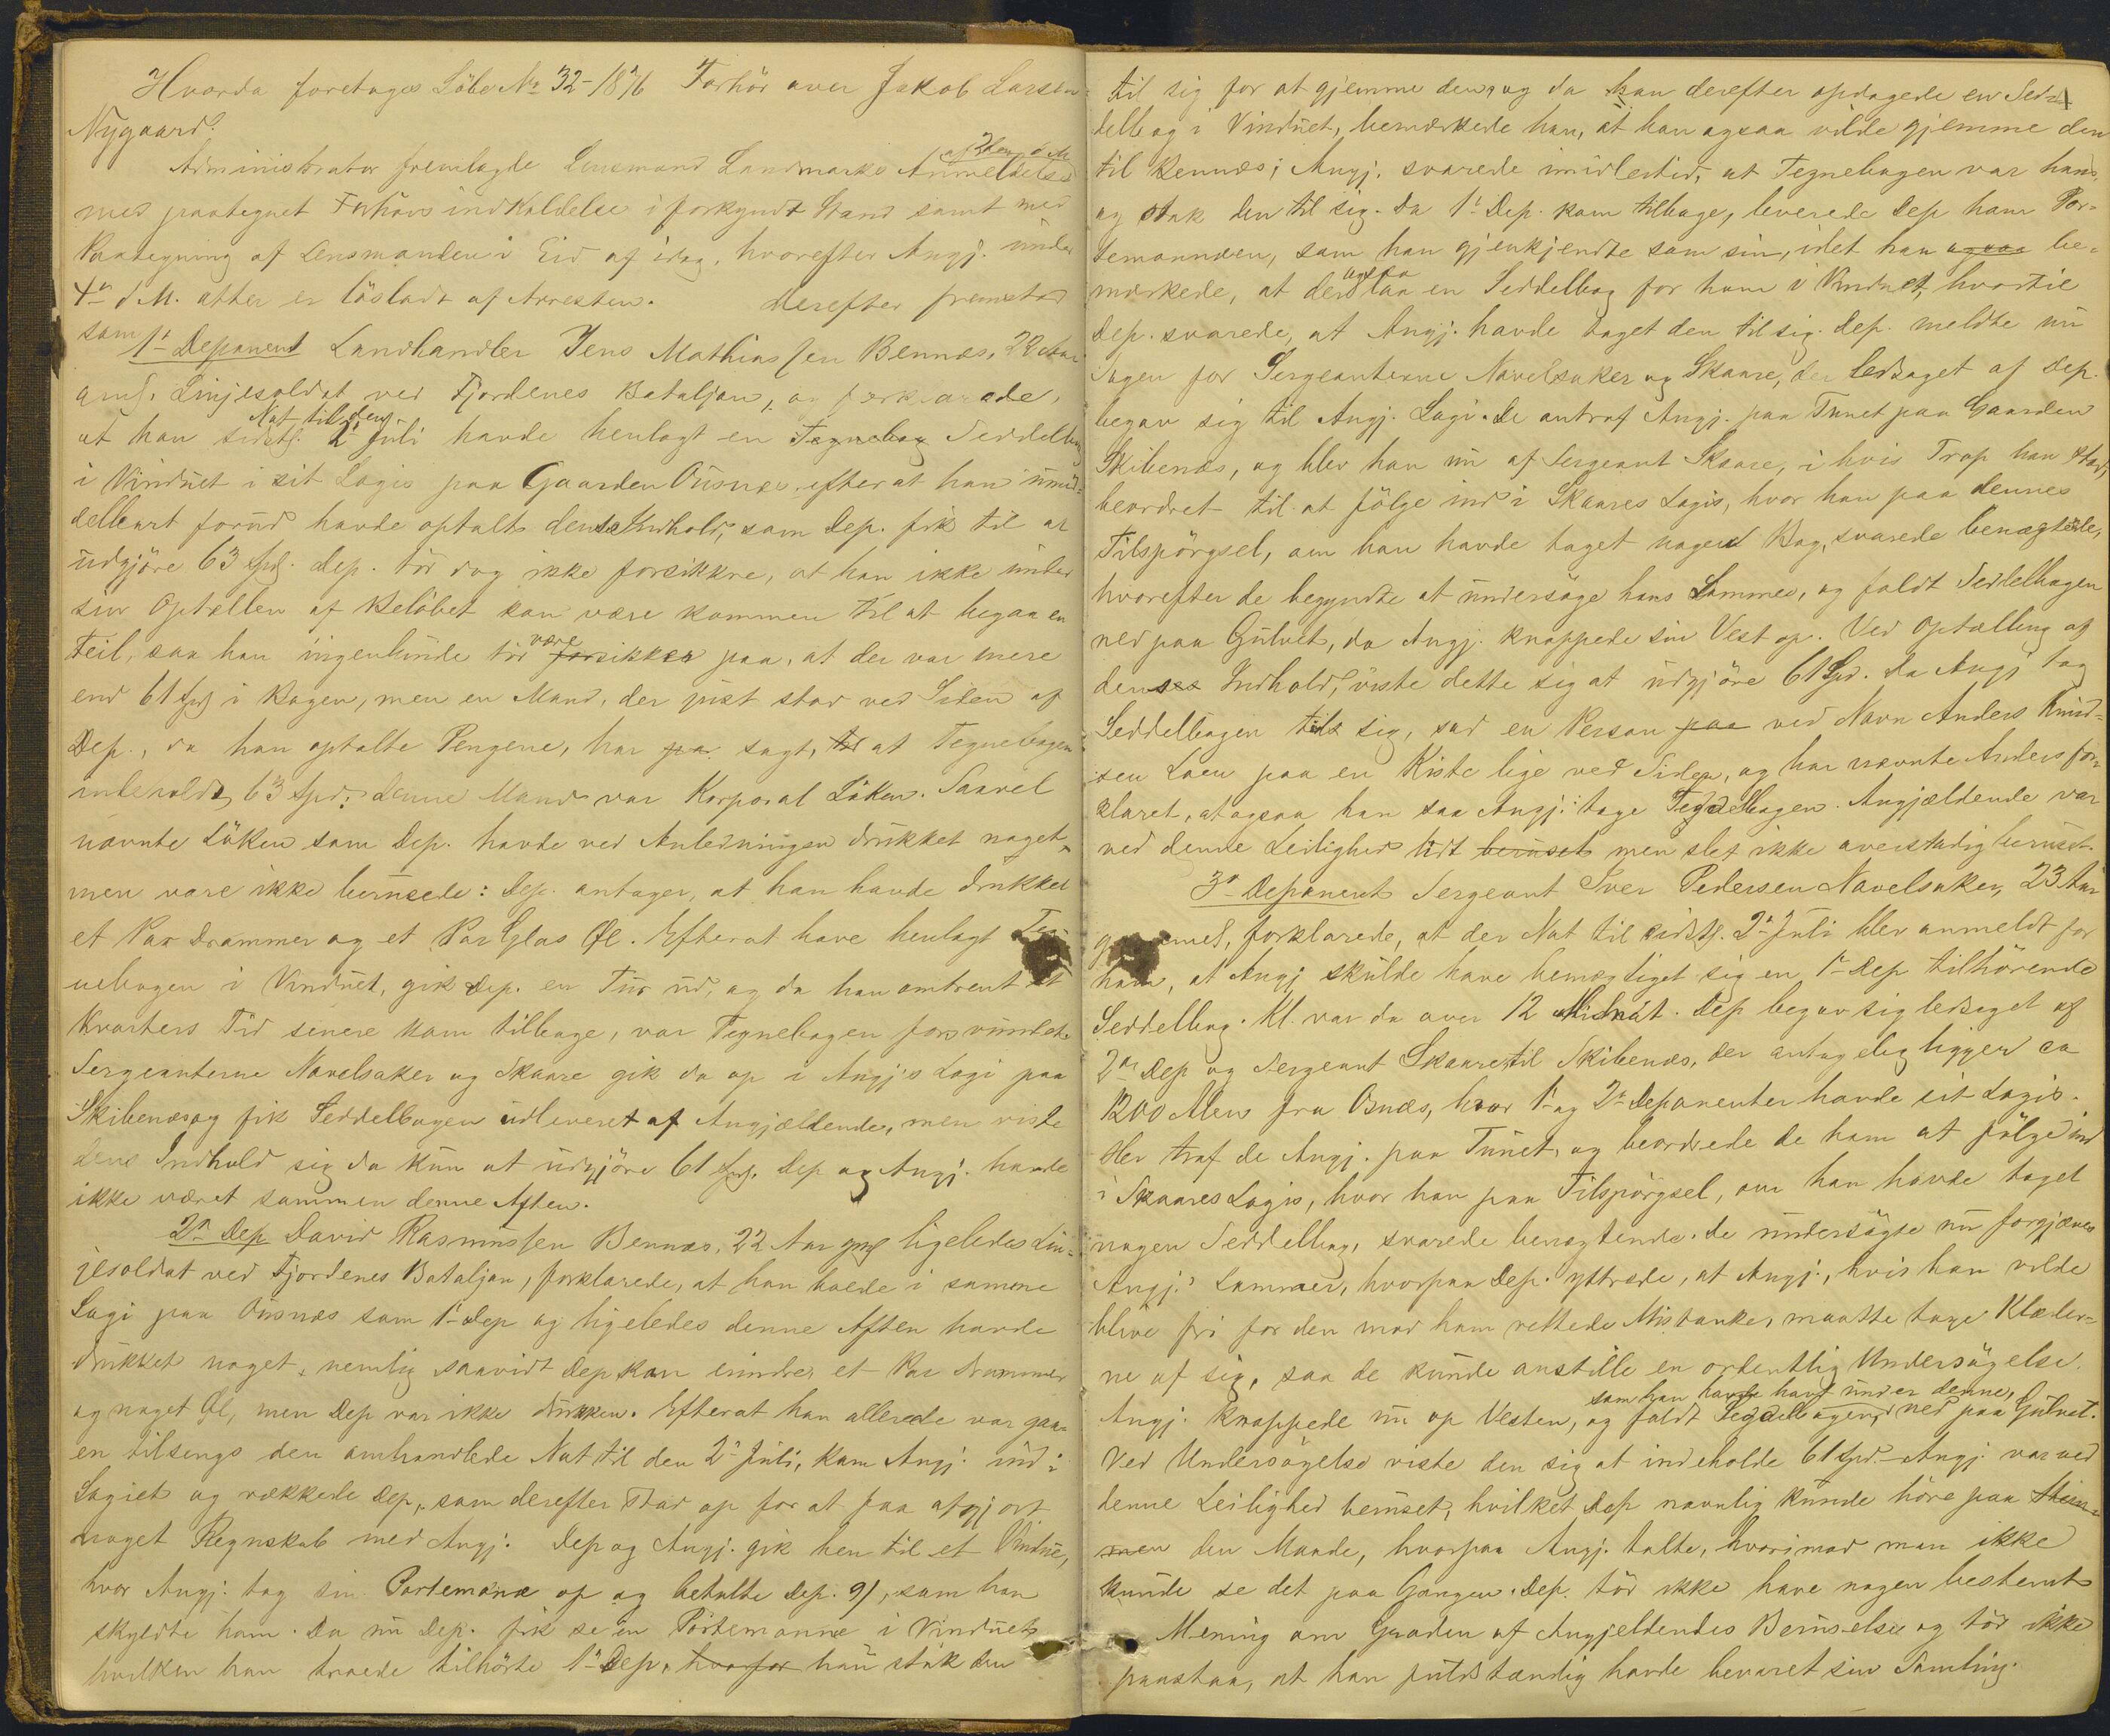 Hvorda foretages Löbe No 32-1876 Forhör over Jakob Larsen
Nygaard.
Administrator fremlagde Lensmand Landmarks Anmeldelse af 2den d. M.
med paategnet Forhörsindkaldelse i forkyndt Stand samt med
Paategning af Lensmanden i Eid af idag, hvorefter Angj. under
4de d M. atter er lösladt af Arresten. Derefter fremstod
som 1ste Deponent Landhandler Jens Mathiassen Bennæs, 22 Aar
Linjesoldat ved Fjordenes Bataljon, og forklarede,
at han sidstl. Nat til den 2den Juli havde henlagt en Tegnebog Seddelbog
i Vinduet i sit Logis paa Gaarden Ousnæs efterat han umid-
delbart forud havde optalt dens Indhold, som Dep. fik til at
udgjöre 63 Spd. Dep. tör dog ikke forsikkre, at han ikke under
sin Optællen af Belöbet kan være kommen til at begaa en
Feil, saa han ingenlunde tör være forsikker paa, at der var mere
end 61 Spd i Bogen, men en Mand, der just stod ved Siden af
Dep., da han optalte Pengene, har paa sagt, til at Tegnebogen
indeholdt 63 Spd; denne Mand var Korporal Löken. Saavel
nævnte Löken som Dep. havde ved Anledningen drukket noget,
men vare ikke berusede: Dep. antager, at han havde drukket
et Par Drammer og et Par Glas Øl. Efterat have henlagt Teg-
nebogen i Vinduet, gik Dep. en Tur ud, og da han omtrent et
Kvarters Tid senere kom tilbage, var Tegnebogen forsvundet.
Sergeanterne Navelsaker og Skaare gik da op i Angj's Logi paa
Skibenæs og fik Seddelbogen udleveret af Angjældende, men viste
dens Indhold sig da kun at udgjöre 61 Spd. Dep og Angj. havde
ikke været sammen denne Aften.
2den Dep David Rasmussen Bennæs, 22 Aar gml ligeledes Lin-
jesoldat ved Fjordenes Bataljon, forklarede, at han boede i samme
Logi paa Ousnæs som 1ste Dep og ligeledes denne Aften havde
drukket noget, nemlig saavidt Dep kan erindre, et Par Drammer
og noget Øl, men Dep var ikke drukken. Efterat han allerede var gaa-
en tilsengs den omhandlede Nat til den 2den Juli, kom Angj. ind i
Logiet og vækkede Dep, som derefter stod op for at faa afgjort
noget Regnskab med Angj. Dep og Angj. gik hen til et Vindue,
hvor Angj. tog sin Portemonæ op og betalte Dep. , som han
skyldte ham. Da nu Dep. fik se en Portemonnæ i Vinduet,
hvilken han troede tilhörte 1ste Dep, hvorfor han stak den
til sig for at gjemme den, og da han derefter opdagede en Sed-
delbog i Vinduet, bemærkede han, at han ogsaa vilde gjemme den
til Bennæs; Angj. svarede imidlertid, at Tegnebogen var hans,
og stak den til sig. Da 1ste Dep. kom tilbage, leverede Dep ham Por-
temonnæen, som han gjenkjendte som sin, idet han ogsaa be-
mærkede, at der ogsaa laa en Seddelbog for ham i Vinduet, hvortil
Dep. svarede, at Angj. havde taget den til sig. Dep. meldte nu
Sagen for Sergeanterne Navelsaker og Skaare, der ledsaget af Dep.
begav sig til Angj. Logi. De antraf Angj. paa Tunet paa Gaarden
Skibenæs, og blev han nu af Sergeant Skaare, i hvis Trop han stod,
beordret til at fölge ind i Skaares Logis, hvor han paa dennes
Tilspörgsel, om han havde taget nogen Bog, svarede benægtende,
hvorefter de begyndte at undersöge hans Lommer, og faldt Seddelbogen
ned paa Gulvet, da Angj. knappede sin Vest op. Ved Optælling af
denses Indhold, viste dette sig at udgjöre 61 Spd. Da Angj tog
Seddelbogen til sig, sad en Person paa ved Navn Anders Knud-
sen Loen paa en Kiste lige ved Siden, og har nævnte Anders for-
klaret, at ogsaa han saa Angj. tage Seddelbogen. Angjældende var
ved denne Leilighed lidt beruset men slet ikke overstadig beruset.
3die Deponent Sergeant Iver Pedersen Navelsaker, 23 Aar
gammel, forklarede, at der Nat til sidstl. 2den Juli blev anmeldt for
ham, at Angj skulde have bemægtiget sig en 1ste Dep tilhörende
Seddelbog. Kl. var da over 12 Midnat. Dep begav sig ledsaget af
2den Dep og Sergeant Skaare til Skibenæs, der antagelig ligger ca
1200 Alen fra Osnæs, hvor 1ste og 2den Deponenter havde sit Logis.
Her traf de Angj. paa Tunet, og beordrede de ham at fölge ind
i Skaares Logis, hvor han paa Tilspörgsel, om han havde taget
nogen Seddelbog, svarede benægtende. De undersögte nu forgjæves
Angj.s Lommer, hvorpaa Dep. yttrede, at Angj., hvis han vilde
blive fri for den mod ham rettede Mistanke, maatte tage Klæder-
ne af sig, saa de kunde anstille en ordentlig Undersögelse.
Angj. knappede nu op Vesten, og faldt Seddelbogen, som han havde havt under denne, ned paa Gulvet.
Ved Undersögelse viste den sig at indeholde 61 Spd. Angj. var ved
denne Leilighed beruset, hvilket Dep navnlig kunde höre paa Stem-
men den Maade, hvorpaa Angj. talte, hvorimod man ikke
kunde se det paa Gangen. Dep. tör ikke have nogen bestemt
Mening om Graden af Angjeldendes Beruselse og tör ikke
paastaa, at han fuldstændig havde bevaret sin Samling.